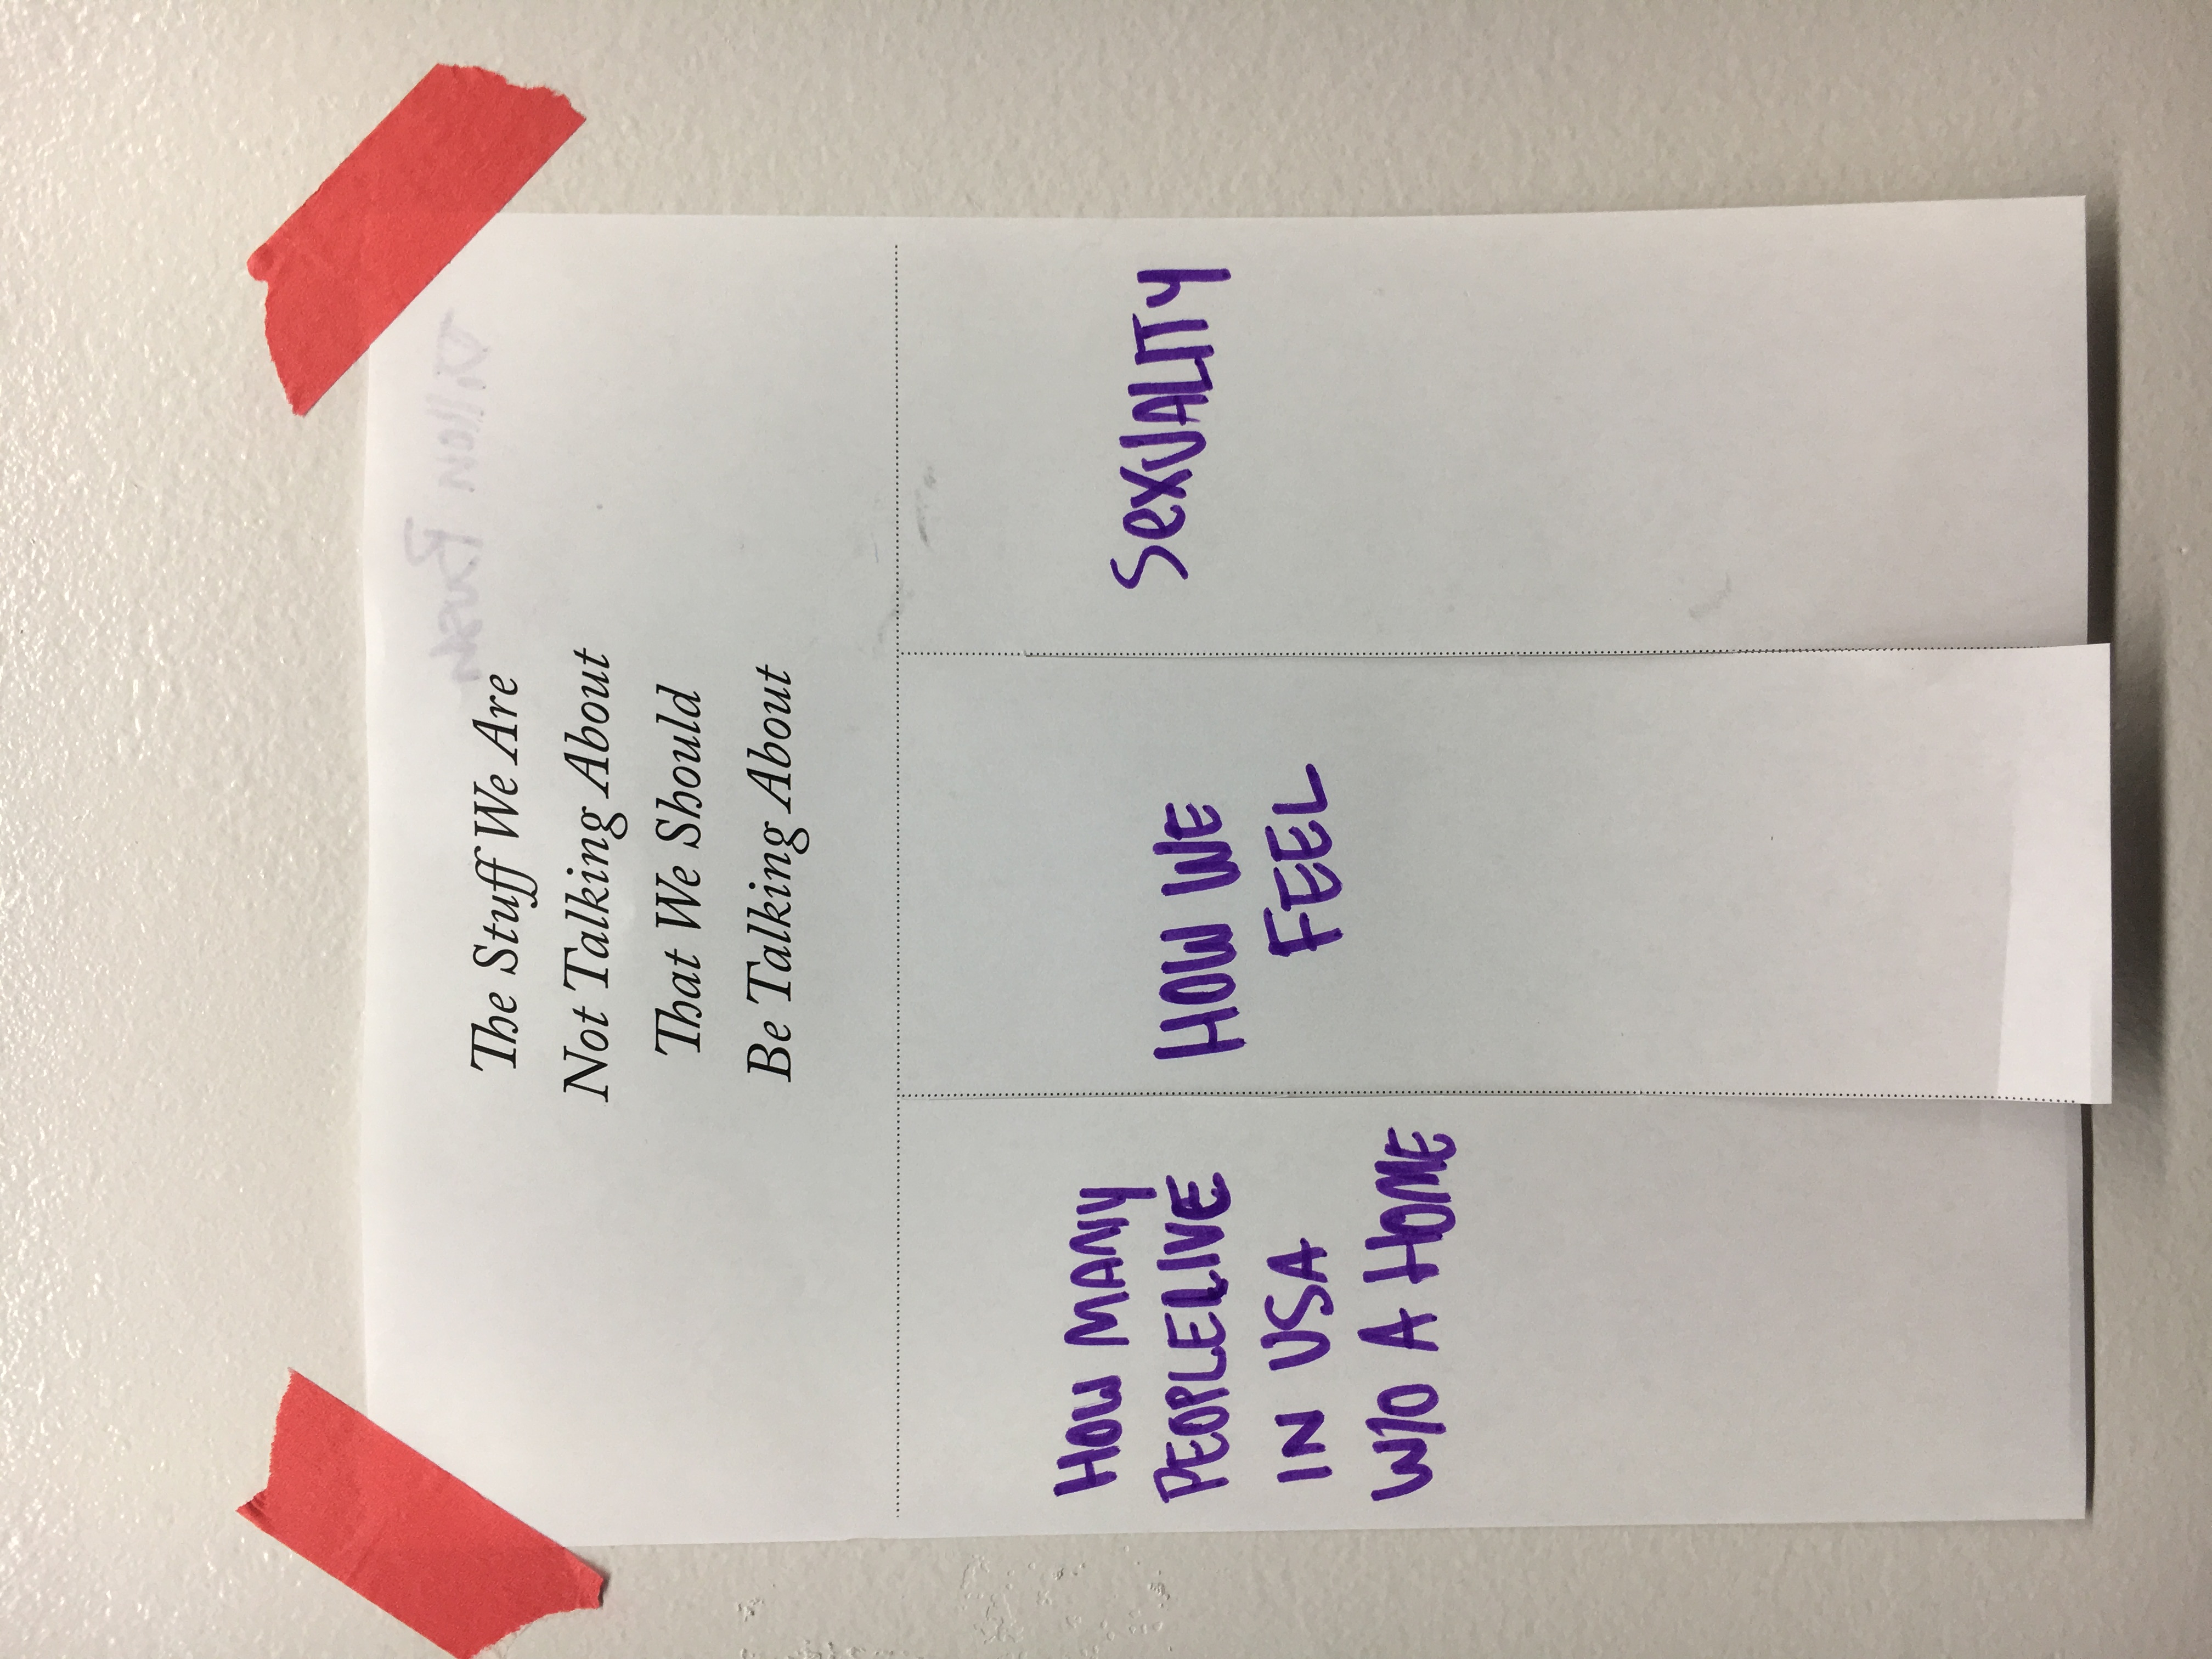 The Stuff We Are
Not Talking About
That We Should
Be Talking About
HOW MANY
PEOPLE LIVE
IN USA
W/O A HOME
HOW WE
FEEL
SeXUALITY